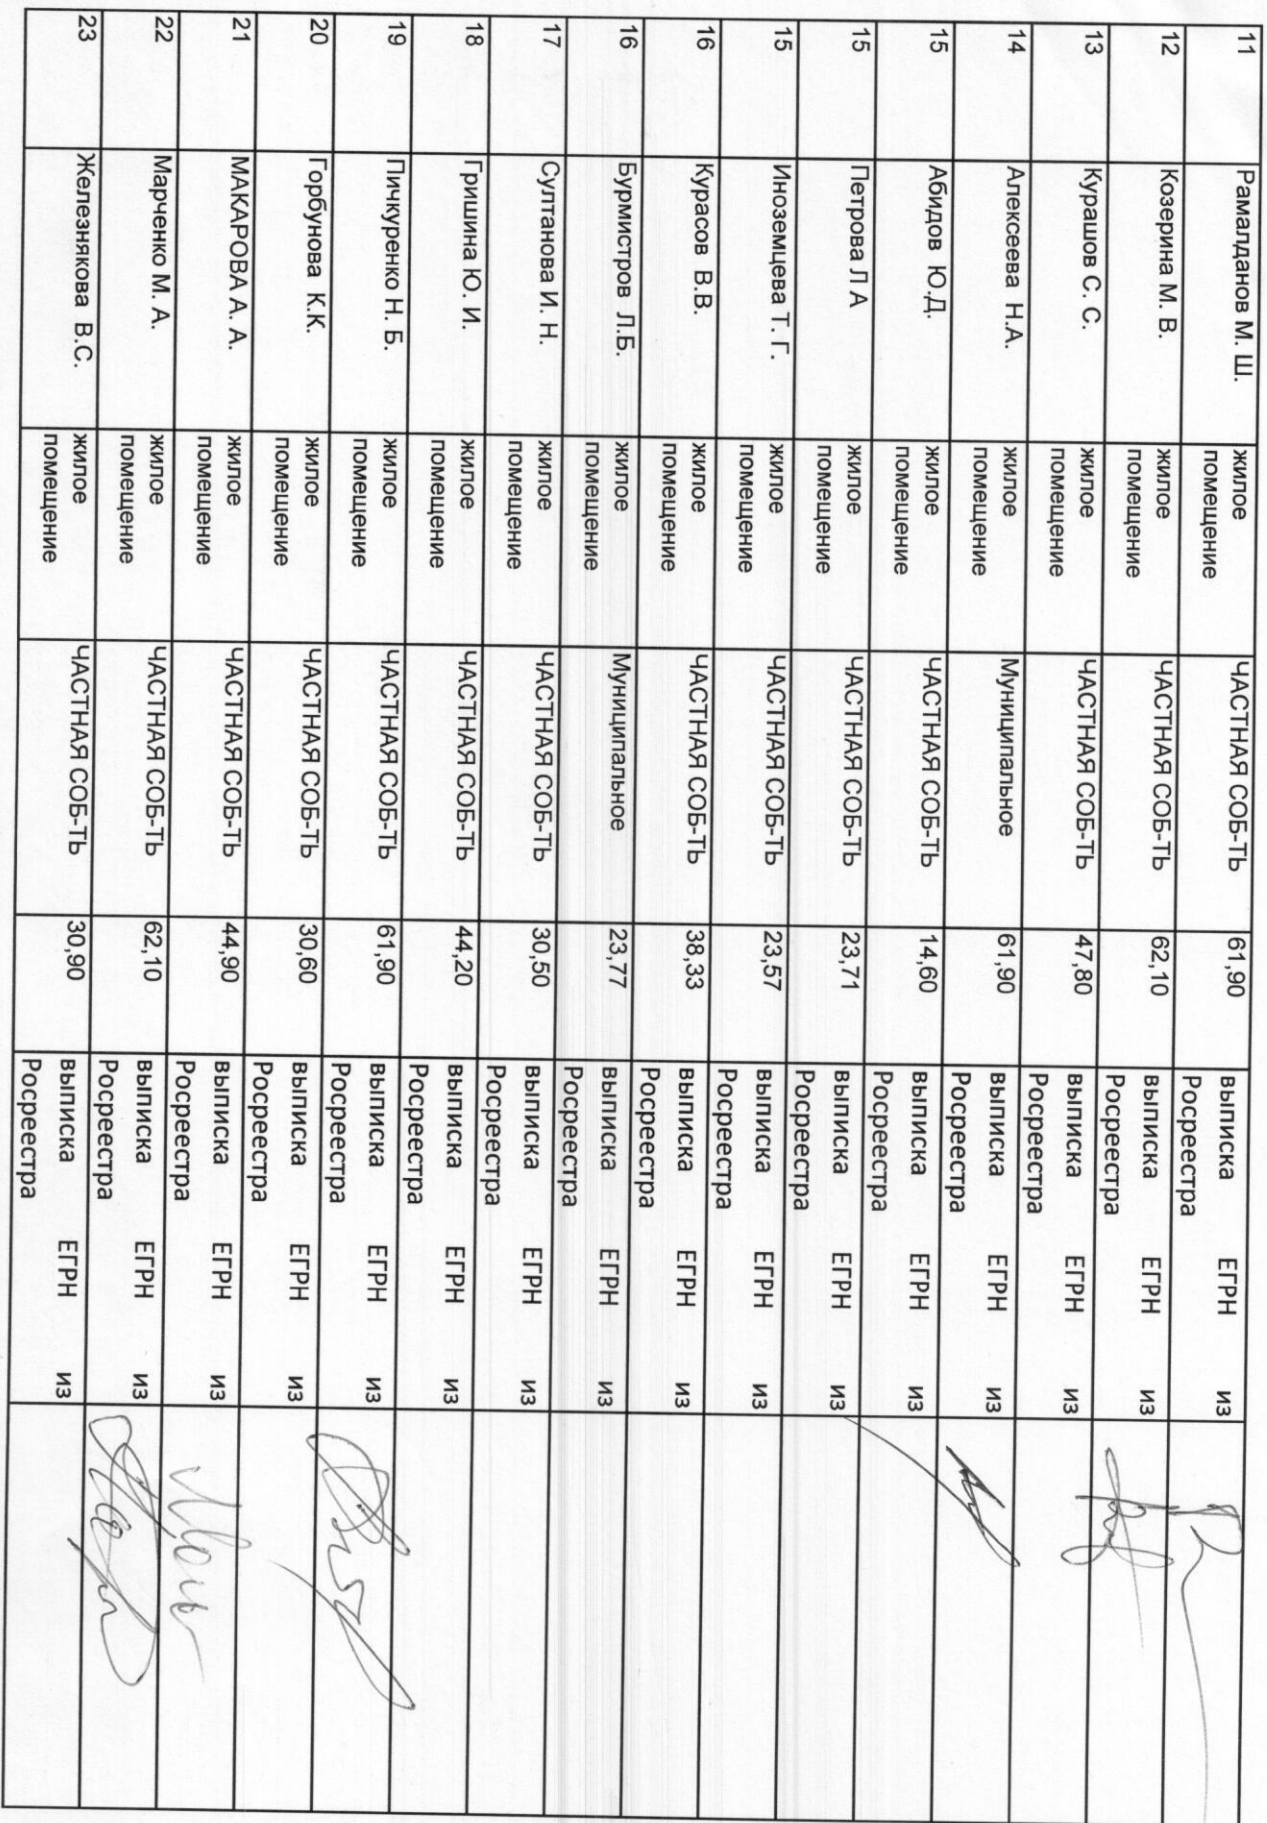 11 Рамалданов М. Ш. жилое помещение ЧАСТНАЯ СОБ-ТЬ 61,90 выписка ЕГРН из Росреестра
12 Козерина М. В. жилое помещение ЧАСТНАЯ СОБ-ТЬ 62,10 выписка ЕГРН из Росреестра
13 Курашов С. С. жилое помещение ЧАСТНАЯ СОБ-ТЬ 47,80 выписка ЕГРН из Росреестра
14 Алексеева Н.А. жилое помещение Муниципальное 61,90 выписка ЕГРН из Росреестра
15 Абидов Ю.Д. жилое помещение ЧАСТНАЯ СОБ-ТЬ 14,60 выписка ЕГРН из Росреестра
15 Петрова Л А жилое помещение ЧАСТНАЯ СОБ-ТЬ 23,71 выписка ЕГРН из Росреестра
15 Иноземцева Т. Г. жилое помещение ЧАСТНАЯ СОБ-ТЬ 23,57 выписка ЕГРН из Росреестра
16 Курасов В.В. жилое помещение ЧАСТНАЯ СОБ-ТЬ 38,33 выписка ЕГРН из Росреестра
16 Бурмистров Л.Б. жилое помещение Муниципальное 23,77 выписка ЕГРН из Росреестра
17 Султанова И. Н. жилое помещение ЧАСТНАЯ СОБ-ТЬ 30,50 выписка ЕГРН из Росреестра
18 Гришина Ю. И. жилое помещение ЧАСТНАЯ СОБ-ТЬ 44,20 выписка ЕГРН из Росреестра
19 Пичкуренко Н. Б. жилое помещение ЧАСТНАЯ СОБ-ТЬ 61,90 выписка ЕГРН из Росреестра
20 Горбунова К.К. жилое помещение ЧАСТНАЯ СОБ-ТЬ 30,60 выписка ЕГРН из Росреестра
21 МАКАРОВА А. А. жилое помещение ЧАСТНАЯ СОБ-ТЬ 44,90 выписка ЕГРН из Росреестра
22 Марченко М. А. жилое помещение ЧАСТНАЯ СОБ-ТЬ 62,10 выписка ЕГРН из Росреестра
23 Железнякова В.С. жилое помещение ЧАСТНАЯ СОБ-ТЬ 30,90 выписка ЕГРН из Росреестра